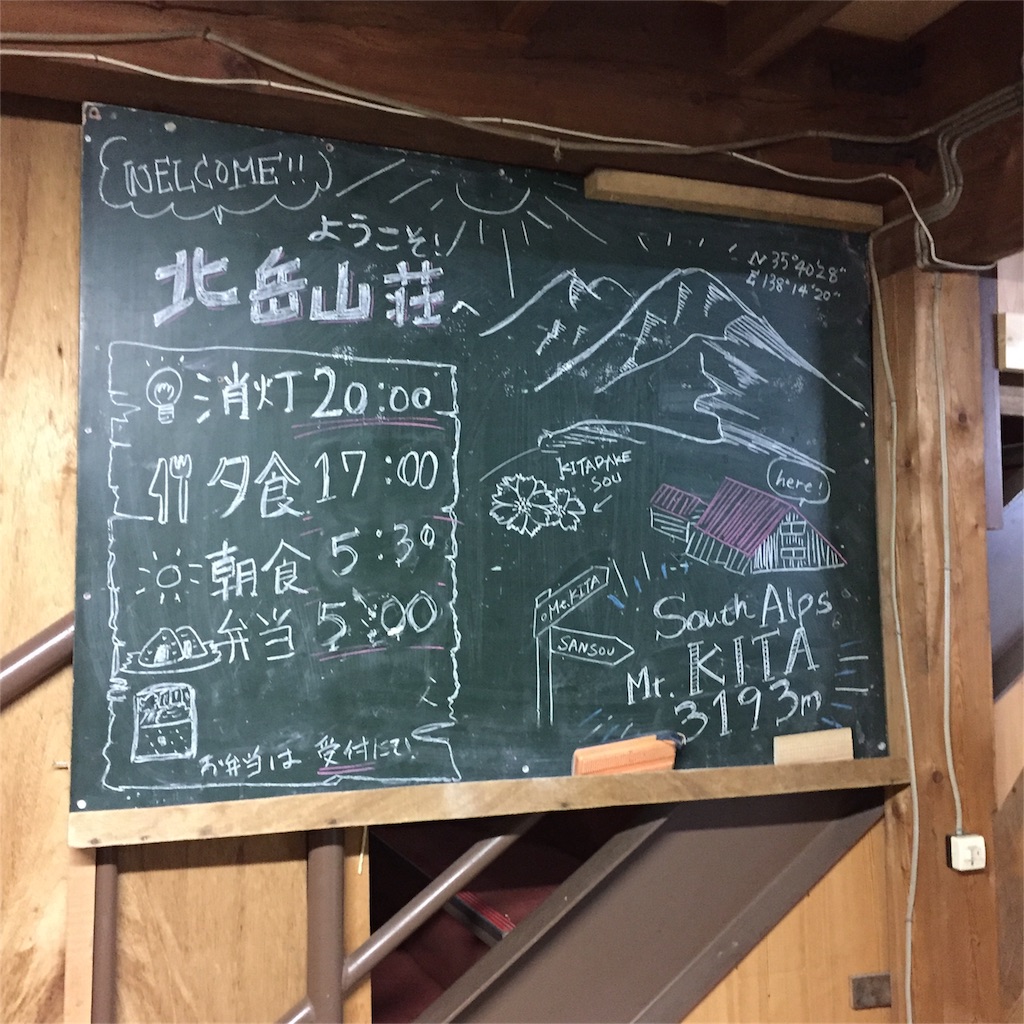 WELCOME!!
ようこそ!
北岳山荘へ
消灯 20:00
夕食 17:00
朝食 5:30
弁当 5:00
お弁当は 受付にて!
N 35°40'28"
E 138°14'20"
KITADAKE
SOU
here!
Mt.KITA
SANSOU
South Alps
Mt. KITA
3193m